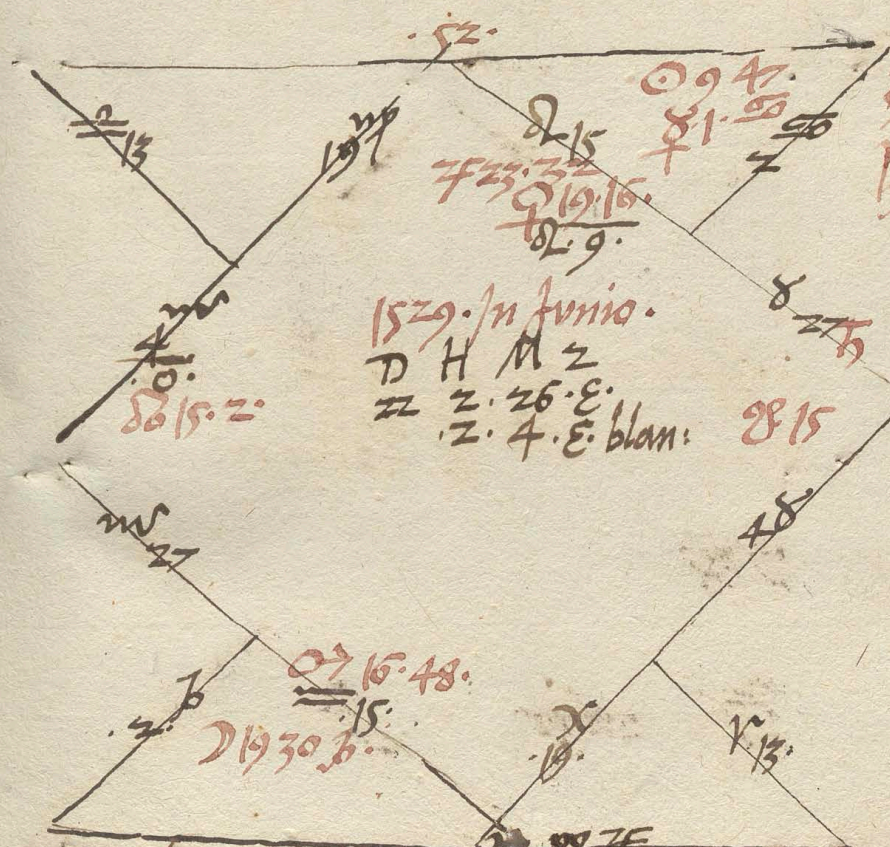 .52.
☉ 9 47.
☿.1.♋
♋
2
♎
13
♍
19
♌
15
♃ 23.32
♀ 19.16.
♌.9.
♉
27
♄
♏
4
10.
☋ 15.2.
1529. In Junio.
D H M 2
22 2. 26.E.
.2. 4.E. blan:
☊ 15
♏
27
4 ♉
♂ 16.48.
♒
.15.
♑
.2.
☽ 19 30 ♑.
♓
.19.
♈
13.